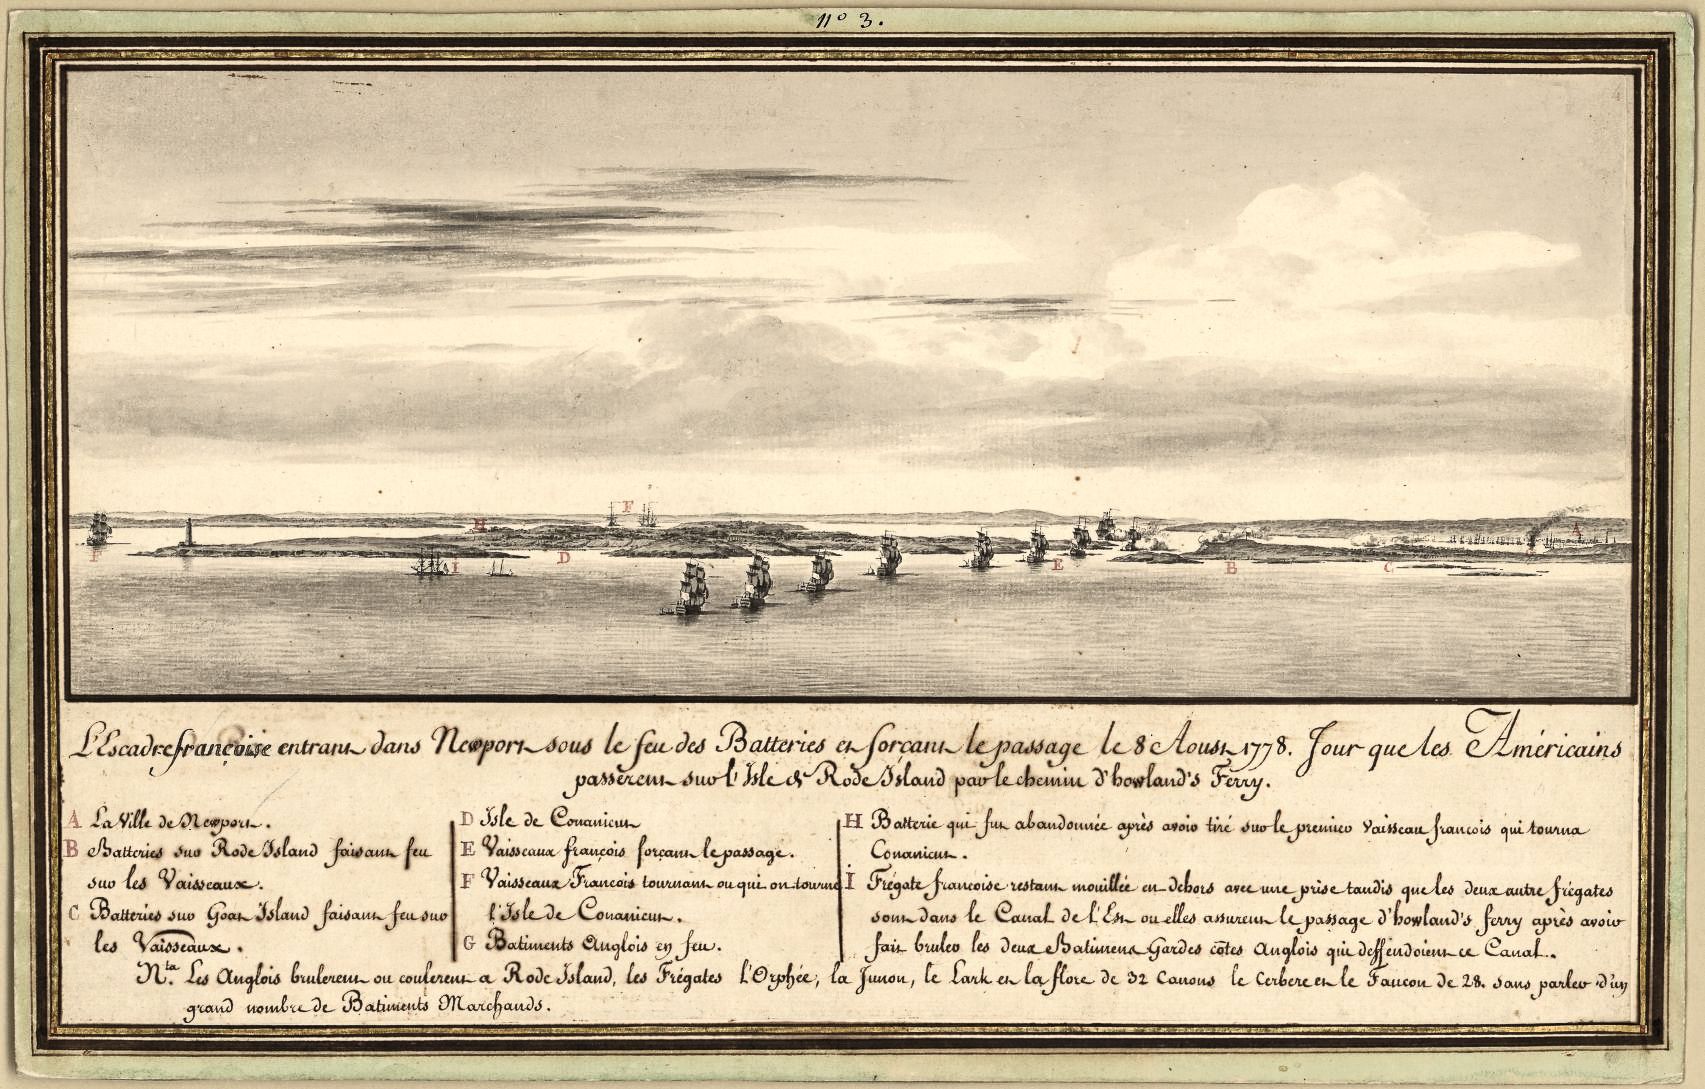 nº 3.
F
H
I
D
F
E
B
C
A
L'Escadre françoise entrant dans Newport sous le feu des Batteries et forçant le passage le 8 Aoust 1778. Jour que les Américains
passèrent sur l'Isle de Rode Island par le chemin d'howland's Ferry.
A La Ville de Newport.
B Batteries sur Rode Island faisant feu
sur les Vaisseaux.
C Batteries sur Goat Island faisant feu sur
les Vaisseaux.
D Isle de Conanicut
E Vaisseaux françois forçant le passage.
F Vaisseaux François tournant ou qui ont tourné
l'Isle de Conanicut.
G Batiments Anglois en feu.
H Batterie qui fut abandonnée après avoir tiré sur le premier Vaisseau françois qui tourna
Conanicut.
I Frégate françoise restant mouillée en dehors avec une prise tandis que les deux autre frégates
sont dans le Canal de l'Est ou elles assurent le passage d'howland's ferry après avoir
fait bruler les deux Batimens Gardes côtes Anglois qui deffendoient ce Canal.
Nta. Les Anglois brulerent ou coulerent a Rode Island, les Frégates l'Orphée, la Junon, le Lark et la flore de 32 Canons le Cerbere et le Faucon de 28. sans parler d'un
grand nombre de Batiments Marchands.